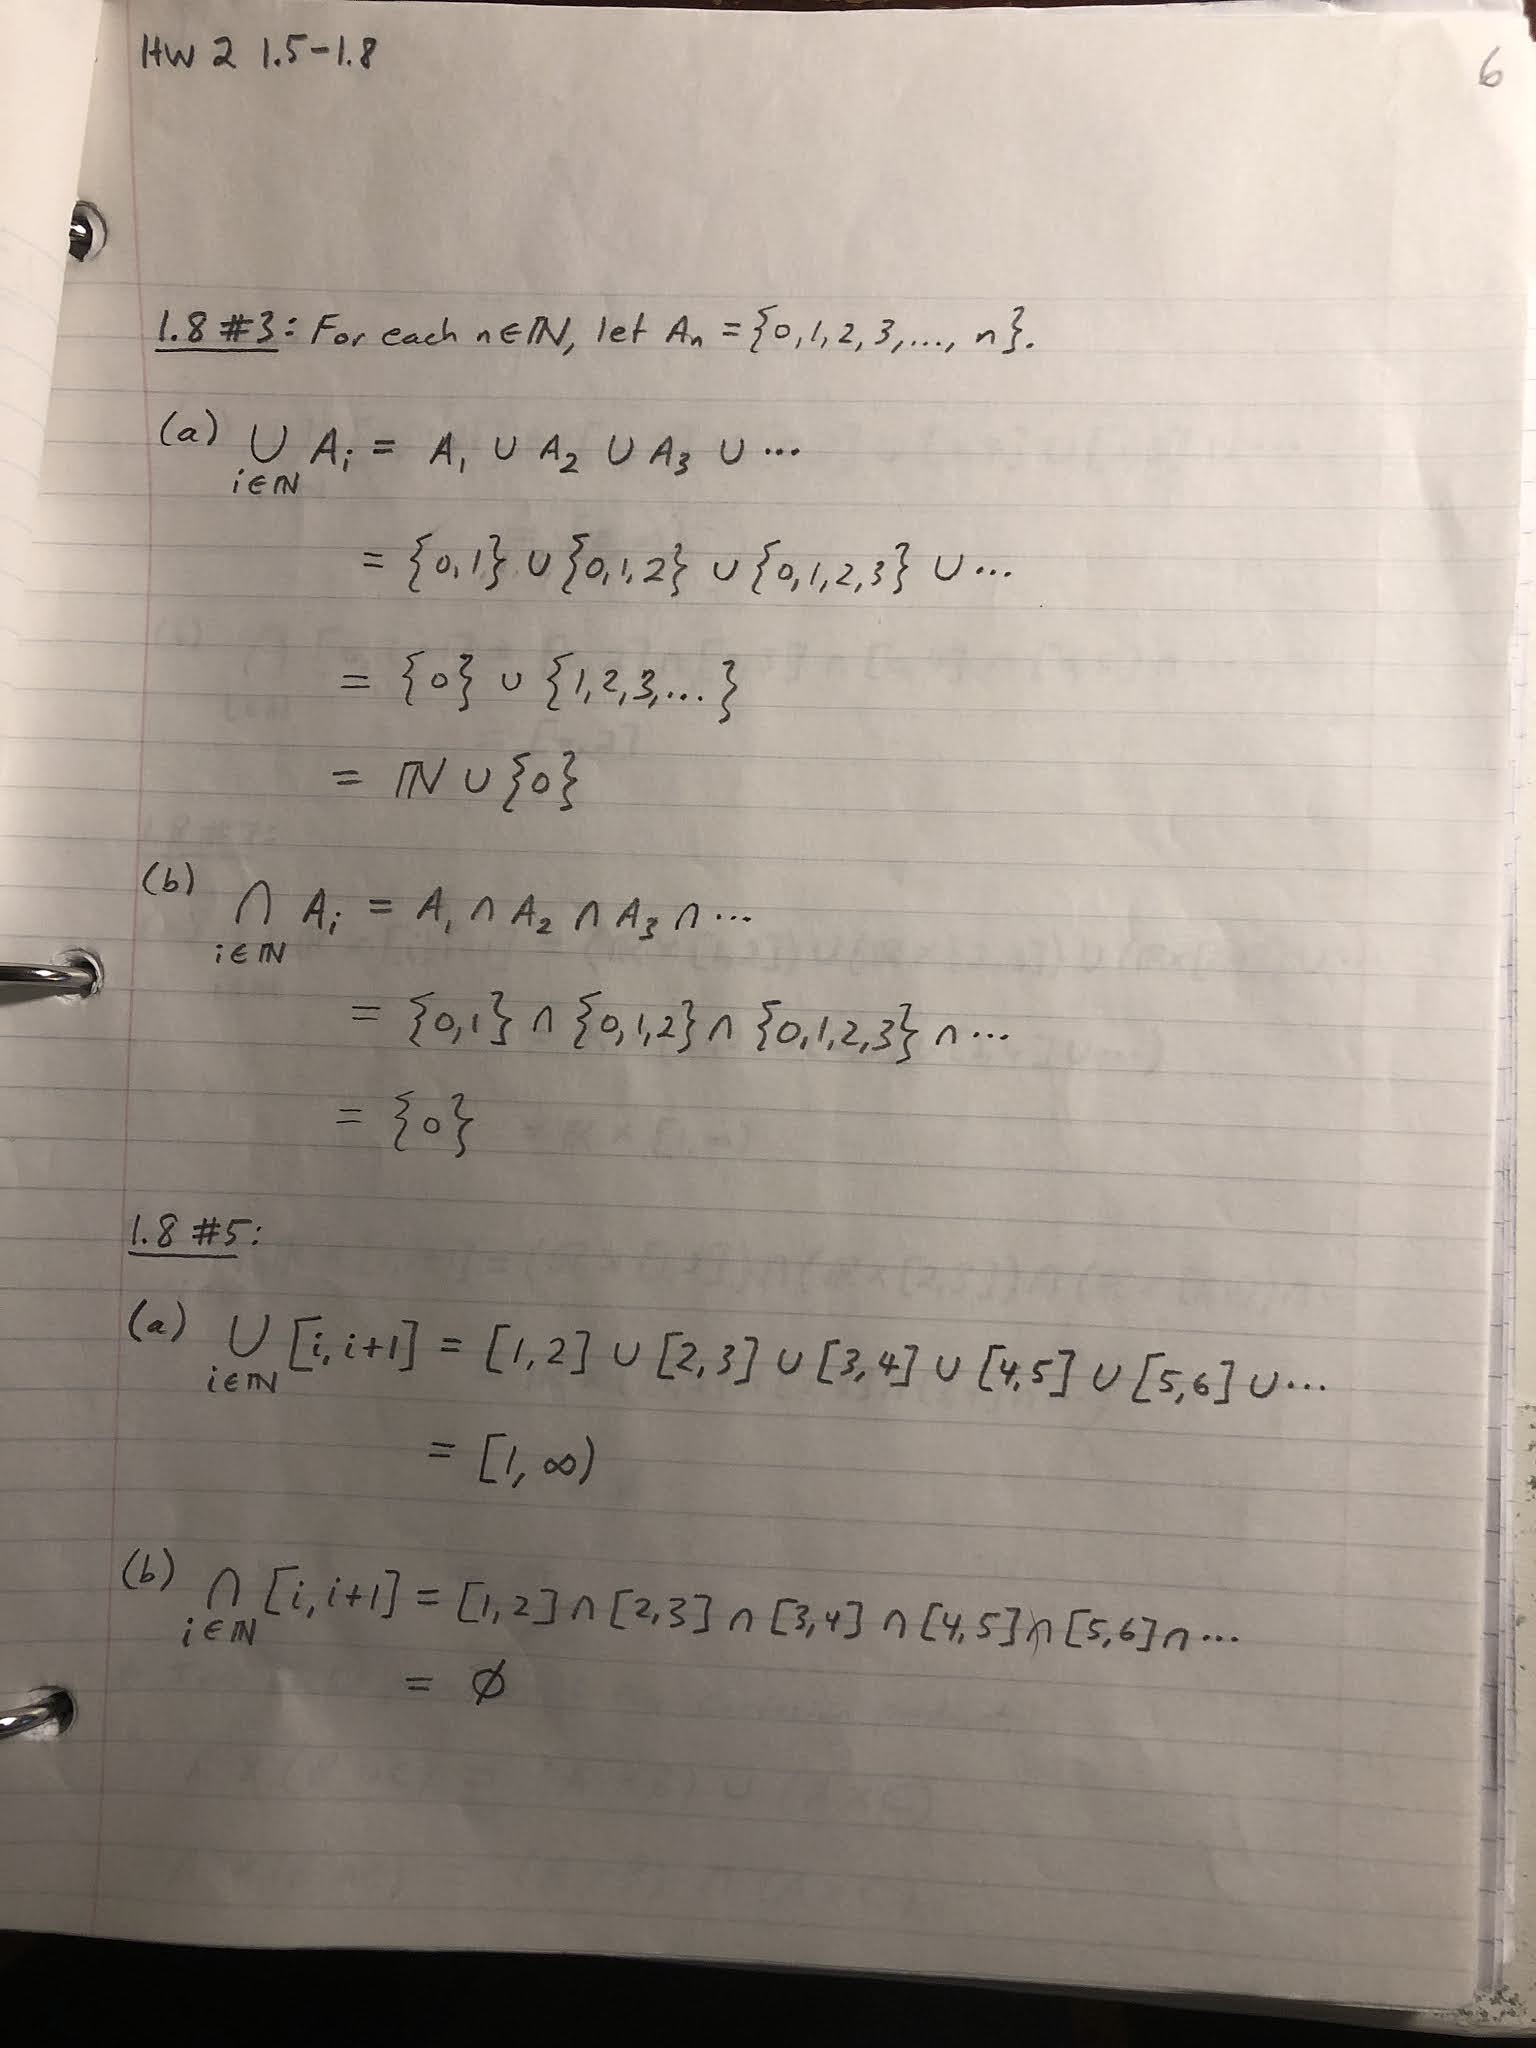 HW 2 1.5-1.8
6
1.8 #3: For each n∈ℕ, let Aₙ = {0,1,2,3,..., n}.
(a) ∪ Aᵢ = A₁ ∪ A₂ ∪ A₃ ∪ ...
i∈ℕ
= {0,1} ∪ {0,1,2} ∪ {0,1,2,3} ∪ ...
= {0} ∪ {1,2,3,...}
= ℕ ∪ {0}
(b) ∩ Aᵢ = A₁ ∩ A₂ ∩ A₃ ∩ ...
i∈ℕ
= {0,1} ∩ {0,1,2} ∩ {0,1,2,3} ∩ ...
= {0}
1.8 #5:
(a) ∪ [i, i+1] = [1,2] ∪ [2,3] ∪ [3,4] ∪ [4,5] ∪ [5,6] ∪ ...
i∈ℕ
= [1, ∞)
(b) ∩ [i, i+1] = [1,2] ∩ [2,3] ∩ [3,4] ∩ [4,5] ∩ [5,6] ∩ ...
i∈ℕ
= ∅